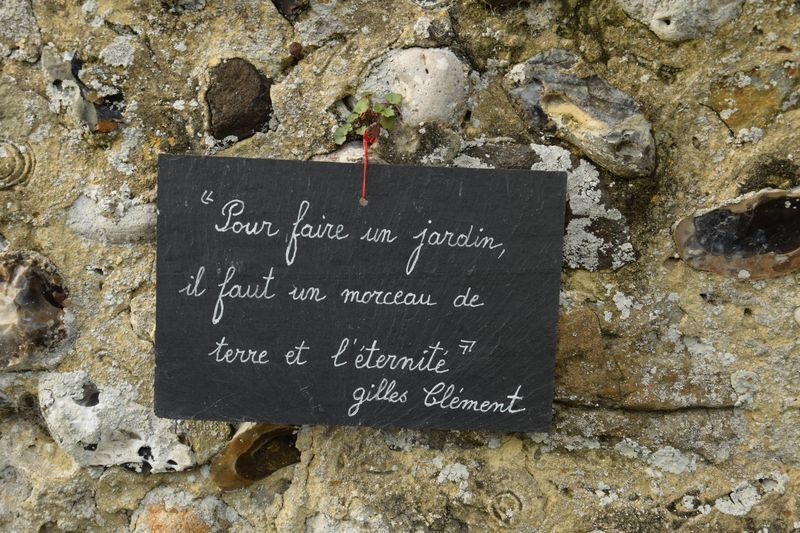 "Pour faire un jardin,
il faut un morceau de
terre et l'éternité"
gilles Clément